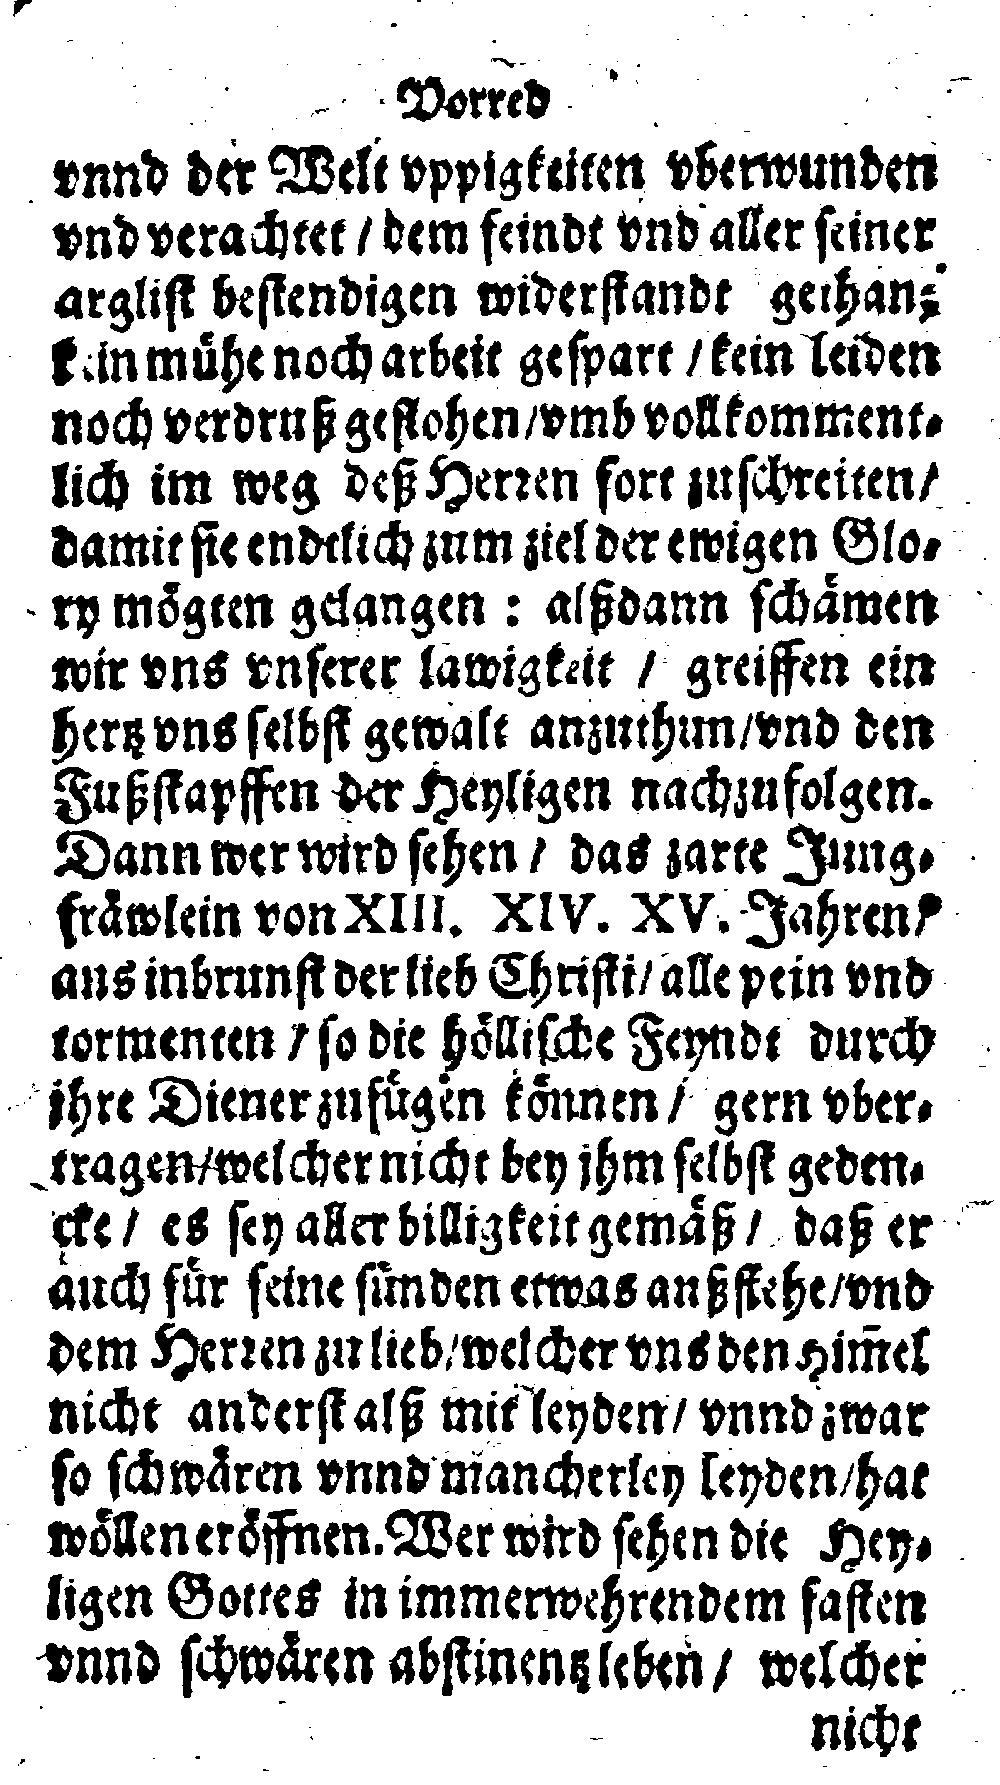 Vorred
vnnd der Welt vppigkeiten vberwunden
vnd verachtet / dem feindt vnd aller seiner
arglist bestendigen widerstandt gethan:
kein mühe noch arbeit gespart / kein leiden
noch verdruß geflohen / vmb vollkomment-
lich im weg deß Herren fort zuschreiten /
damit sie endtlich zum ziel der ewigen Glo-
ry mögten gelangen : alßdann schämen
wir vns vnserer lawigkeit / greiffen ein
hertz vns selbst gewalt anzuthun / vnd den
Fußstapffen der Heyligen nachzufolgen.
Dann wer wird sehen / das zarte Jung-
fräwlein von XIII. XIV. XV. Jahren /
aus inbrunst der lieb Christi / alle pein vnd
tormenten / so die höllische Feyndt durch
jhre Diener zufügen können / gern vber-
tragen / welcher nicht bey jhm selbst geden-
cke / es sey aller billigkeit gemäß / daß er
auch für seine sünden etwas außstehe / vnd
dem Herren zu lieb / welcher vns den Him̄el
nicht anderst alß mit leyden / vnnd zwar
so schwären vnnd mancherley leyden / hat
wöllen eröffnen. Wer wird sehen die Hey-
ligen Gottes in immerwehrendem fasten
vnnd schwären abstinentz leben / welcher
nicht